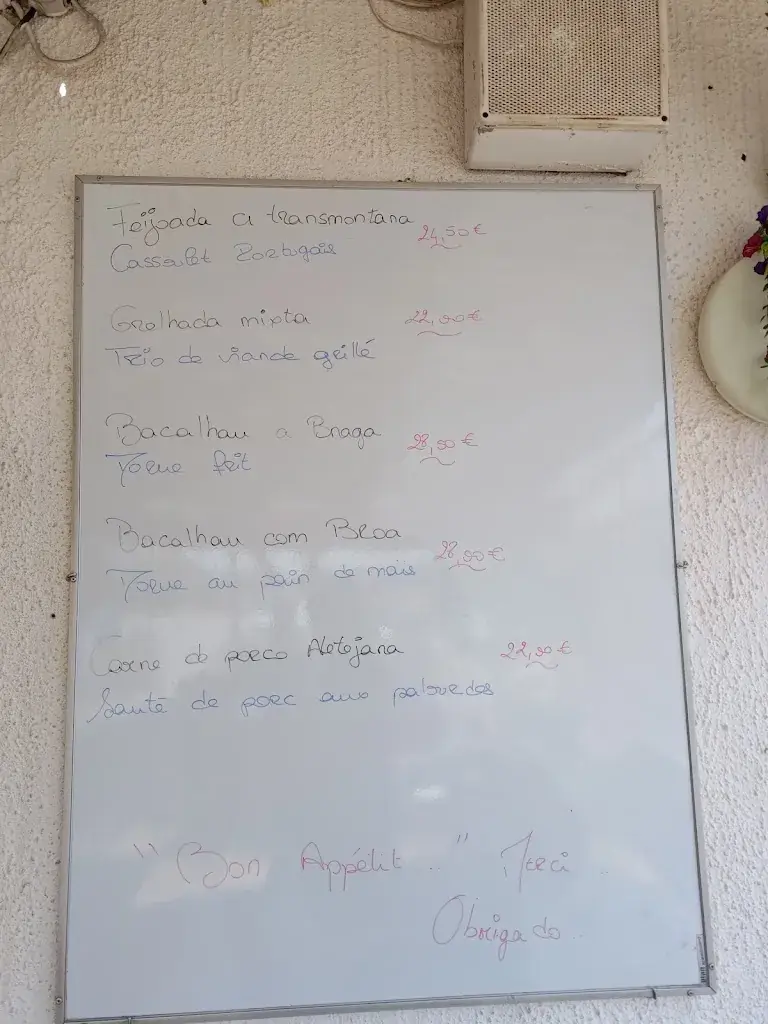 Feijoada a transmontana 24,50€
Cassoulet Portugais
Grolhada mixta 22,90€
Trio de viande grillé
Bacalhau a Braga 28,90€
Morue frit
Bacalhau com Broa 28,90€
Morue au pain de mais
Carne de porco Aletejana 22,90€
Sauté de porc aux palourdes
"Bon Appétit.." Merci
Obrigado..